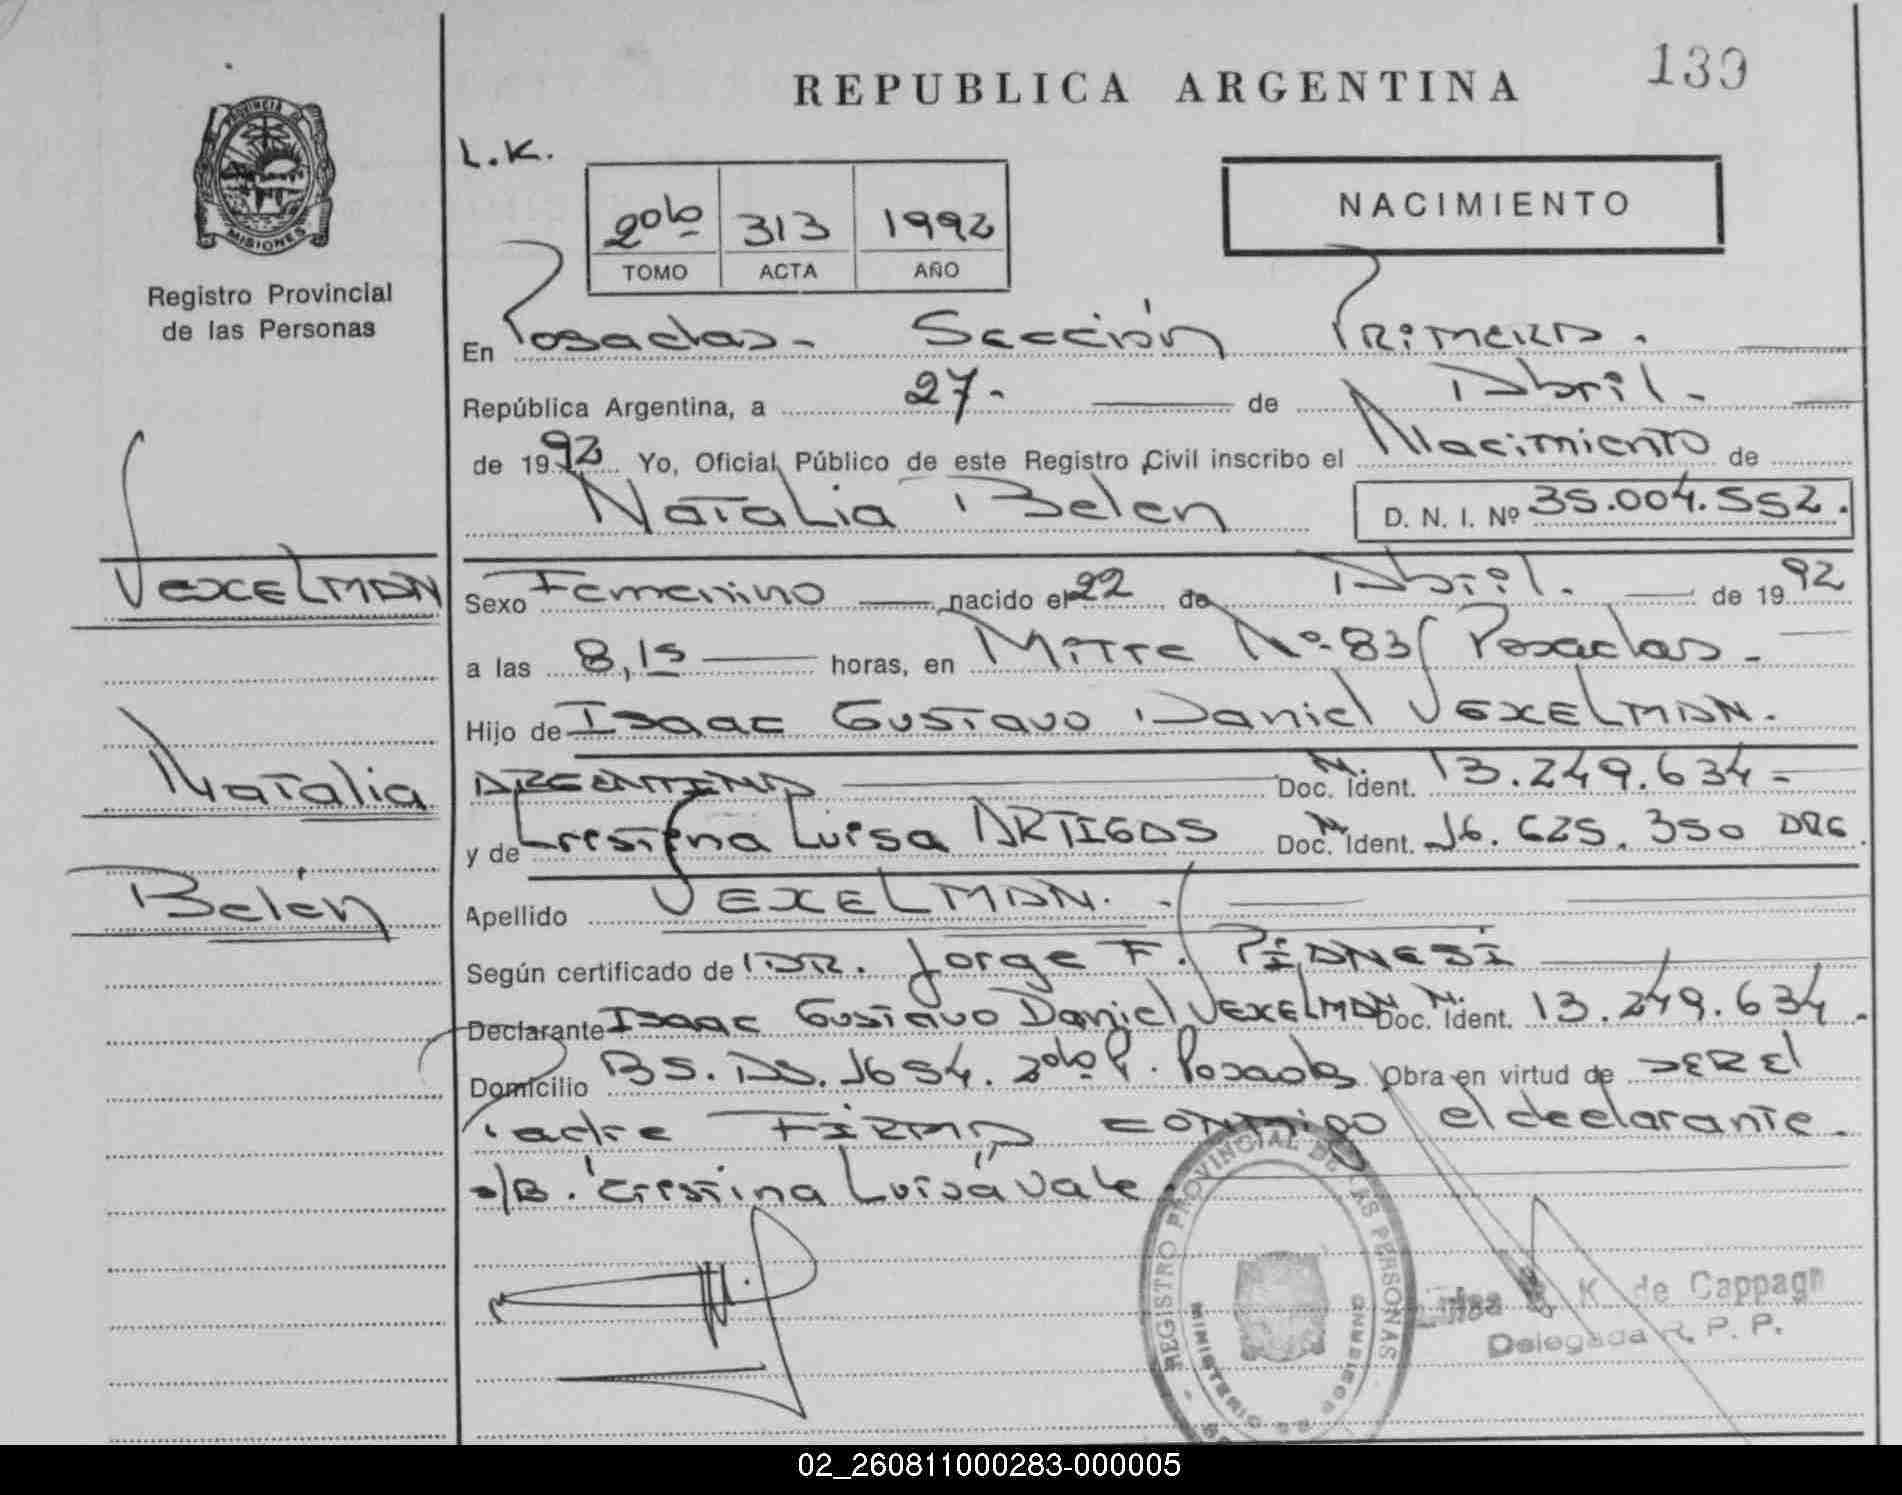 REPUBLICA ARGENTINA
139
PROVINCIA DE
MISIONES
Registro Provincial
de las Personas
L.K.
2do 313 1992
TOMO ACTA AÑO
NACIMIENTO
En Posadas - Sección Primera.
República Argentina, a 27. de Abril.
de 1992 Yo, Oficial Público de este Registro Civil inscribo el Nacimiento de
Natalia Belen D. N. I. Nº 35.004.552.
VEXELMAN
Natalia
Belén
Sexo Femenino nacido el 22 de Abril. de 1992
a las 8,15 horas, en Mitre Nº 83 Posadas.
Hijo de Isaac Gustavo Daniel VEXELMAN.
ARGENTINO Doc. Ident. M. 13.249.634 -
y de Cristina Luisa ARTIGAS Doc. Ident. N 16.625.350 ARG.
Apellido VEXELMAN. -
Según certificado de DR. Jorge F. PIANESI
Declarante Isaac Gustavo Daniel VEXELMAN Doc. Ident. M. 13.249.634.
Domicilio BS. AS. 1654. 2do P. Posadas Obra en virtud de SER El
Padre FIRMA conmigo el declarante.
s/B. Cristina Luisa Vale.
REGISTRO PROVINCIAL DE LAS PERSONAS
MINISTERIO DE GOBIERNO
K. de Cappagn
Delegada R. P. P.
02_260811000283-000005